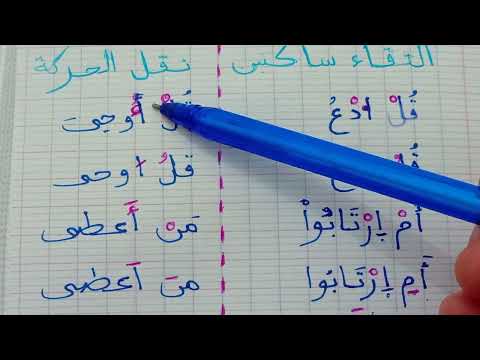 التقاء ساكنين نقل الحركة
قُلْ ادْعُ قُلْ أُوحِىَ
قلُ اوحى
أَمْ اِرْتَابُواْ مَنْ أَعطى
أَمِ اِرْتَابُوا منَ اَعطى